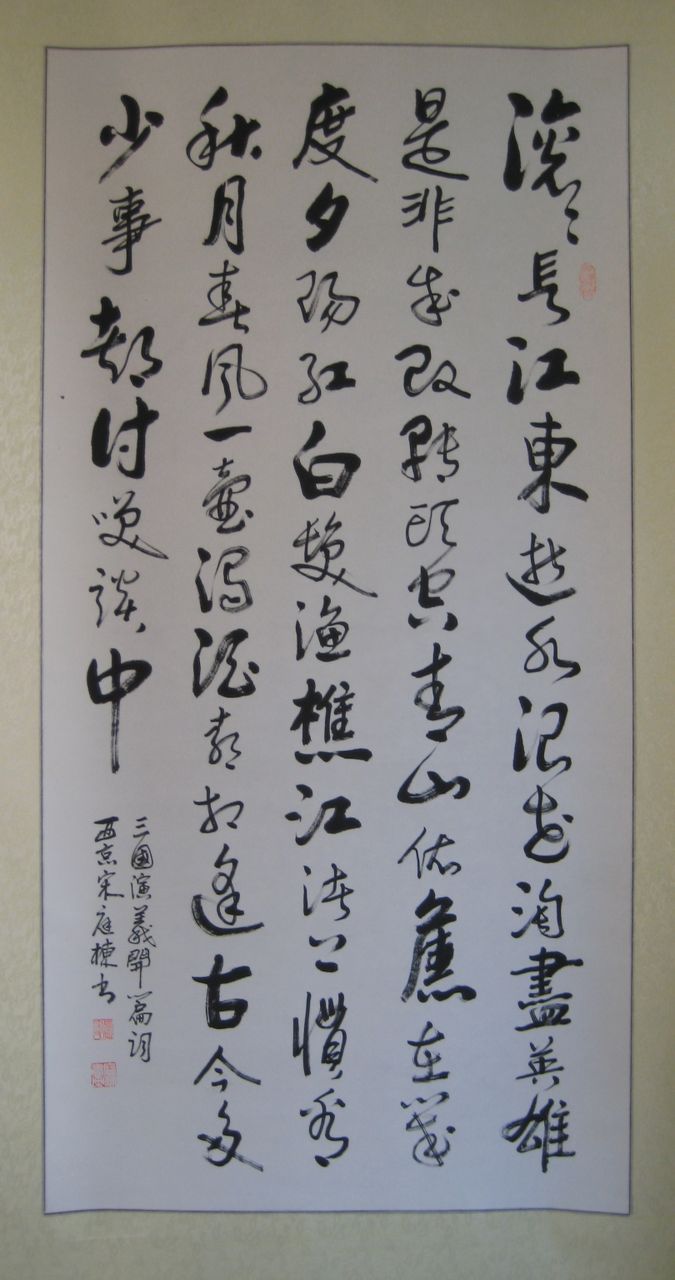 滾〻長江東逝水浪花淘盡英雄
是非成敗轉頭空青山依舊在幾
度夕陽紅白髮漁樵江渚上慣看
秋月春風一壺濁酒喜相逢古今多
少事都付咲談中
三國演義開篇詞
西京宋庭棟書